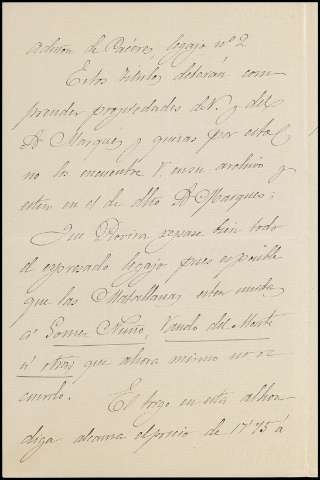 de Cáceres, legajo nº 2.
Estos títulos deberán com-
prender propiedades de V. y del
Sr Marques y quizas por esta
no los encuentre V. en su archivo y
esten en el de dho Sr Marques.
Que Rovira repase bien todo
el espresado legajo pues es posible
que las Matallanas esten unidas
á Gomez Nuño, Vando del Monte
ú otras que ahora mismo no re-
cuerdo.
El trigo en esta alhon-
diga alcanza el precio de 17'75 á